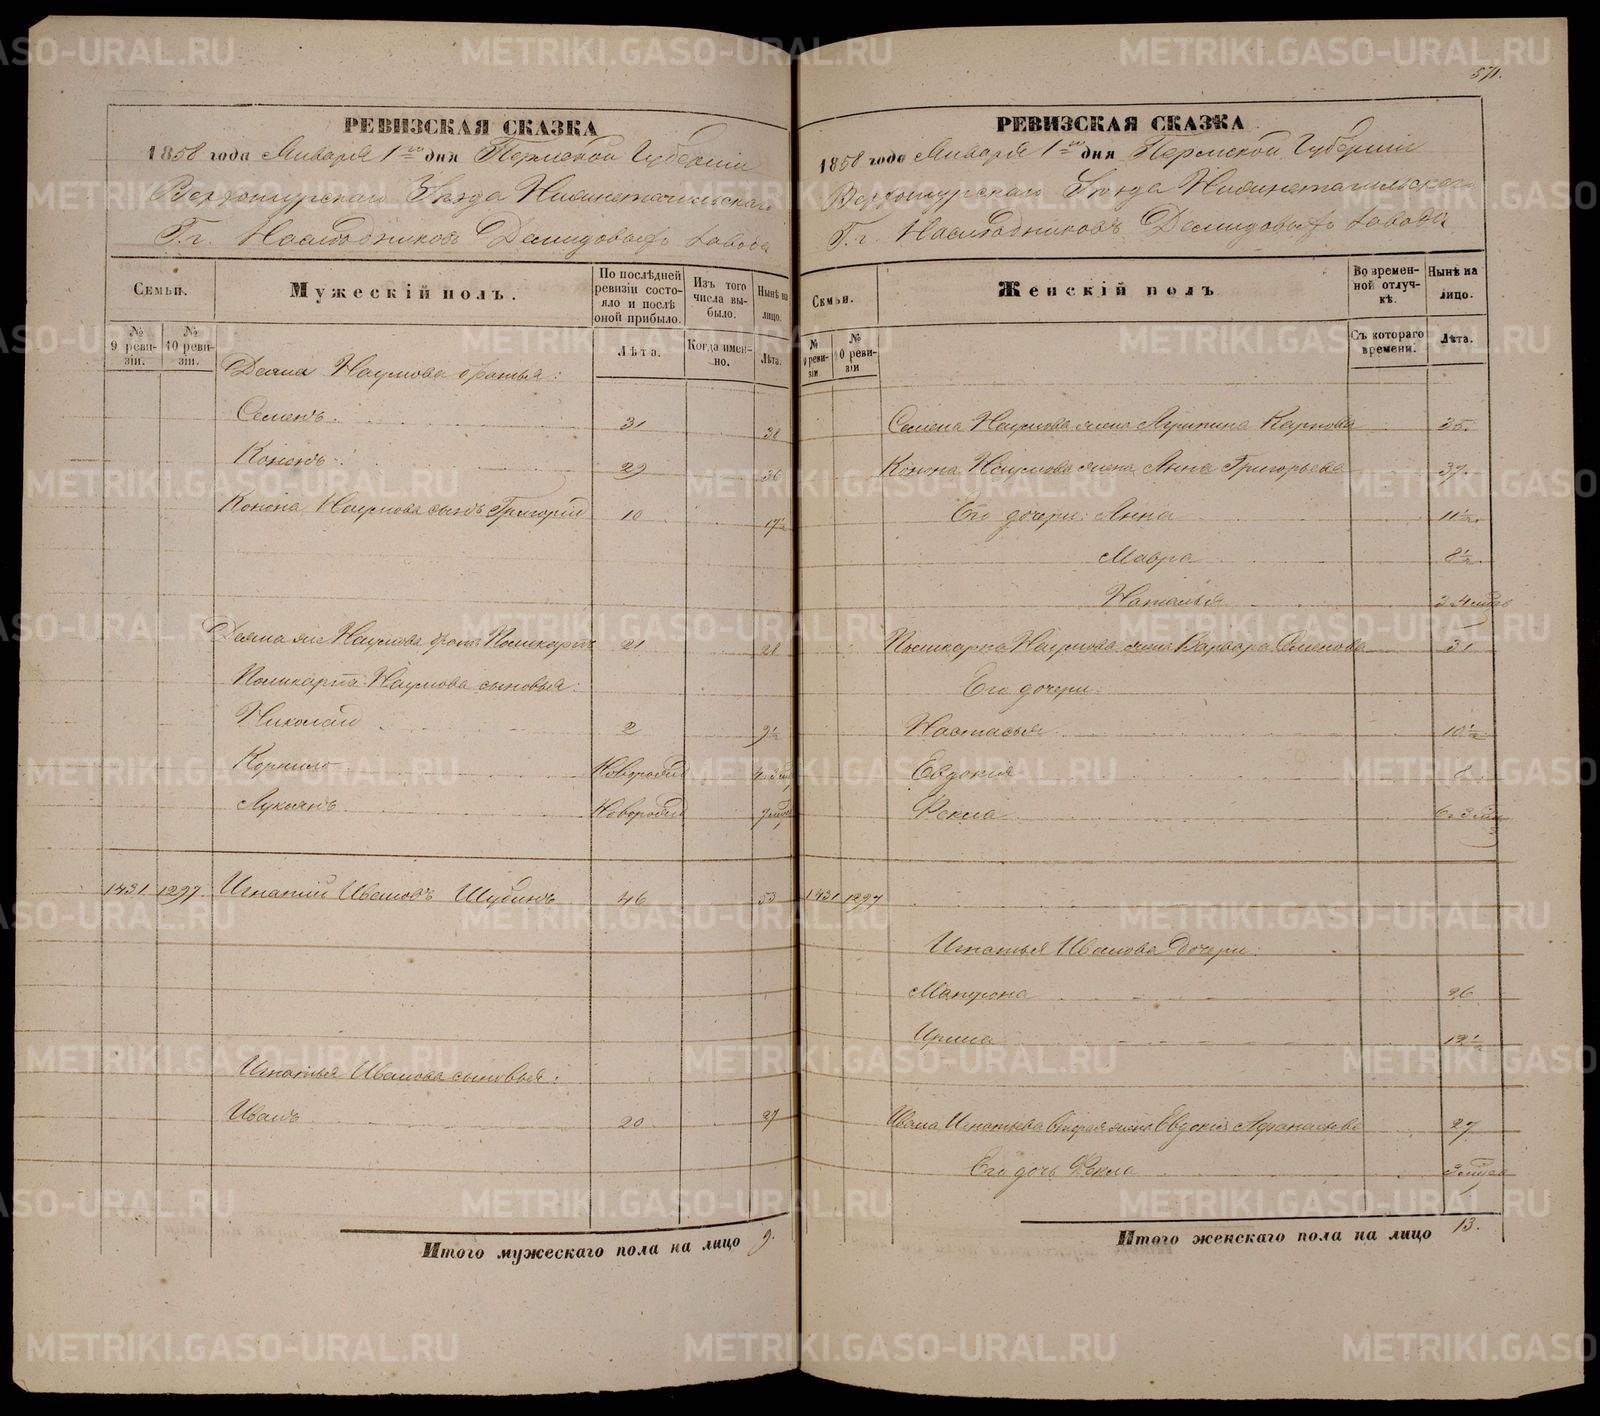 РЕВИЗСКАЯ СКАЗКА
1858 года Января 1го дня Пермской Губерніи
Верхотурскаго Уѣзда Нижнетагильскаго
Г. г. Наслѣдниковъ Демидовыхъ завода
Семьи.
Мужескій полъ.
По послѣдней ревизіи состояло и послѣ оной прибыло.
Изъ того числа выбыло.
Нынѣ на лицо.
№ 9 ревизіи.
№ 10 ревизіи.
Лѣта.
Когда именно.
Лѣта.
Наумова братья:
Семенъ 31 38
Кононъ 29 36
Конона Наумова сынъ Григорій 10 17½
же Наумова братъ Поликарпъ 21 28
Поликарпа Наумова сыновья:
Николай 2 9½
Корнило Новорожд
Лукіянъ Новорожд
1431 1297 Игнатій Ивановъ Шубинъ 46 53
Игнатья Иванова сыновья:
Иванъ 20 27
Итого мужескаго пола на лицо 9.
571.
РЕВИЗСКАЯ СКАЗКА
1858 года Января 1го дня Пермской Губерніи
Верхотурскаго Уѣзда Нижнетагильскаго
Г. г. Наслѣдниковъ Демидовыхъ завода
Семьи.
Женскій полъ
Во временной отлучкѣ.
Нынѣ на лицо.
№ 9 ревизіи
№ 10 ревизіи
Съ котораго времени.
Лѣта.
Семена Наумова жена Агрипина Карпова 35.
Конона Наумова жена Анна Григорьева 37.
Его дочери: Анна 11½.
Мавра 8½
Наталья
Поликарпа Наумова жена Варвара Семенова 31
Его дочери:
Настасья 10½
Евдокія 8
Фекла
1431 1297
Игнатья Иванова дочери:
Матрона 26
Ирина 12½
Ивана Игнатьева вторая жена Евдокія Афанасьева 27
Его дочь Фекла
Итого женскаго пола на лицо 13.
METRIKI.GASO-URAL.RU